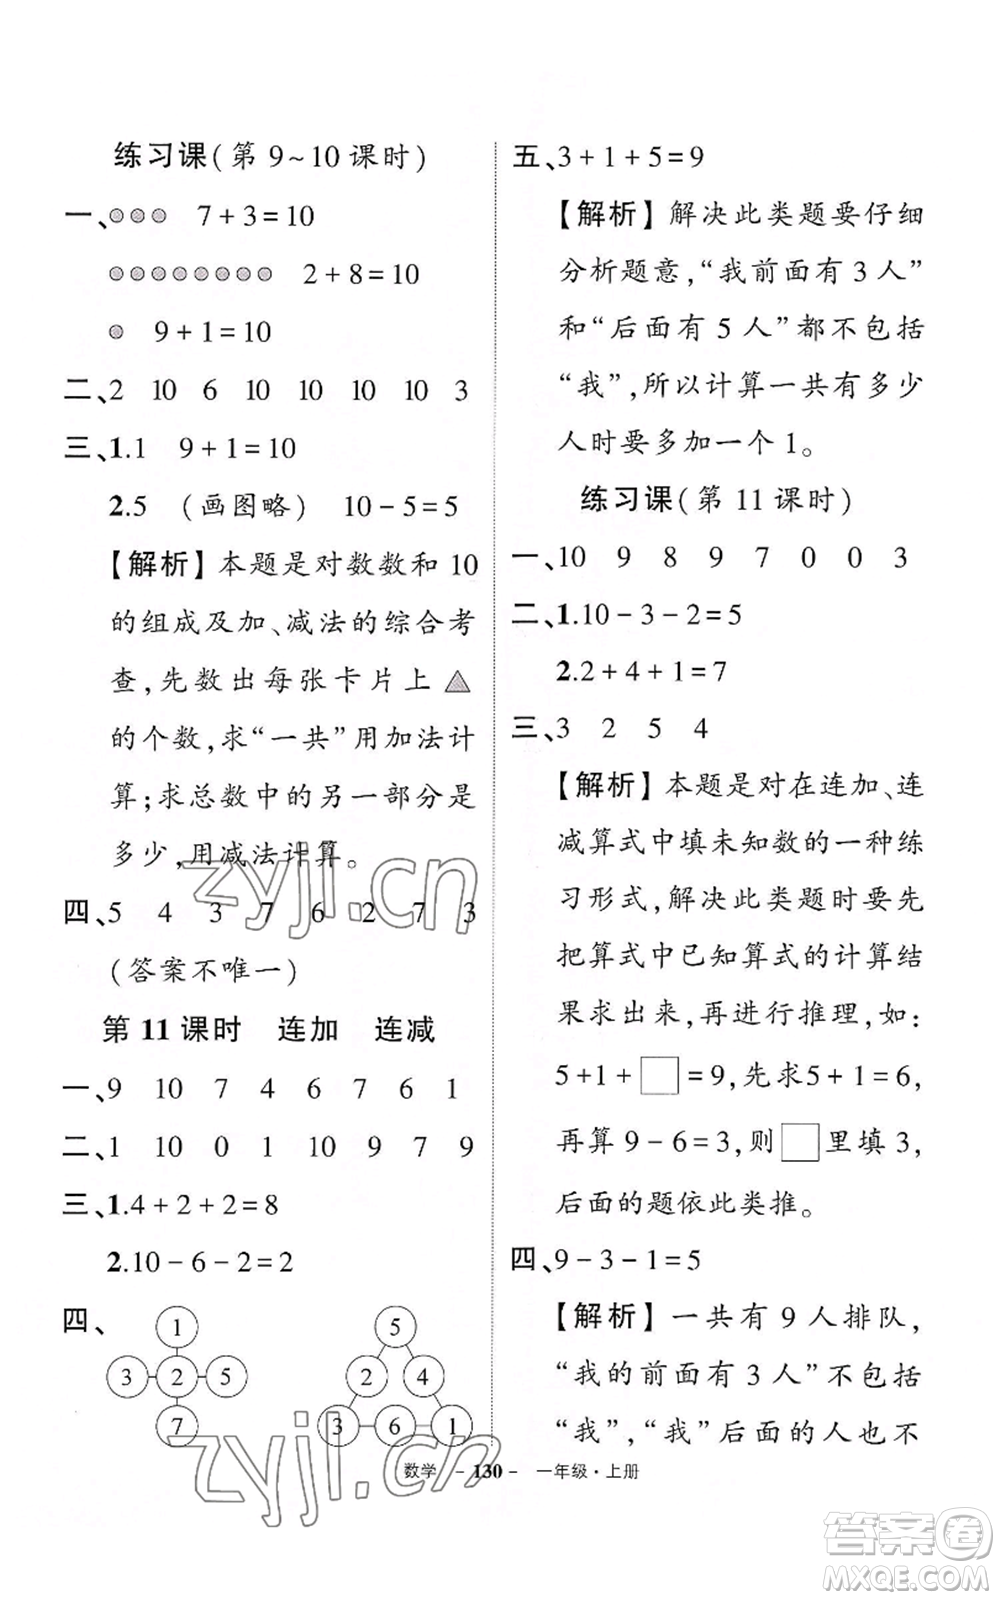 练习课(第 9~10 课时)
一、 7+3=10
2+8=10
9+1=10
二、2 10 6 10 10 10 10 3
三、1.1 9+1=10
2.5 (画图略) 10-5=5
【解析】本题是对数数和 10
的组成及加、减法的综合考
查,先数出每张卡片上
的个数,求“一共”用加法计
算;求总数中的另一部分是
多少,用减法计算。
四、5 4 3 7 6 2 7 3
(答案不唯一)
第 11 课时 连加 连减
一、9 10 7 4 6 7 6 1
二、1 10 0 1 10 9 7 9
三、1.4+2+2=8
2.10-6-2=2
四、
1
3 2 5
7
5
2 4
3 6 1
五、3+1+5=9
【解析】解决此类题要仔细
分析题意,“我前面有 3 人”
和“后面有 5 人”都不包括
“我”,所以计算一共有多少
人时要多加一个 1。
练习课(第 11 课时)
一、10 9 8 9 7 0 0 3
二、1.10-3-2=5
2.2+4+1=7
三、3 2 5 4
【解析】本题是对在连加、连
减算式中填未知数的一种练
习形式,解决此类题时要先
把算式中已知算式的计算结
果求出来,再进行推理,如:
5+1+□=9,先求5+1=6,
再算 9-6=3,则□里填 3,
后面的题依此类推。
四、9-3-1=5
【解析】一共有 9 人排队,
“我的前面有 3 人”不包括
“我”,“我”后面的人也不
数学 - 130 - 一年级·上册
zyji.cn
zyji.cn
答案卷
MXQE.COM